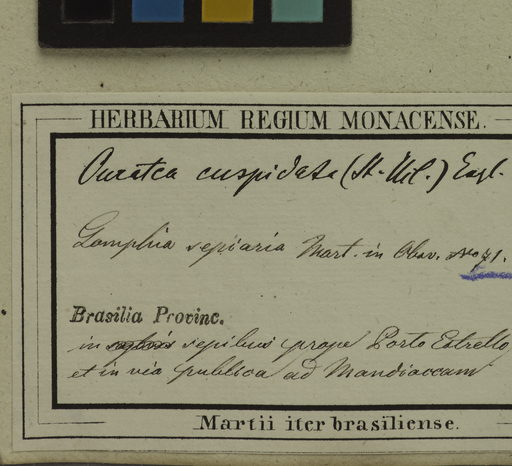 HERBARIUM REGIUM MONACENSE.
Ouratea cuspidata (St. Hil.) Engl.
Gomphia sepiaria Mart. in Obsv. No 71.
Brasilia Provinc.
in sepibus prope Porto Estrello
et in via publica ad Mandioccam
Martii iter brasiliense.